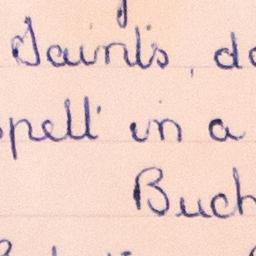 Saints, do
spell in a
Buch